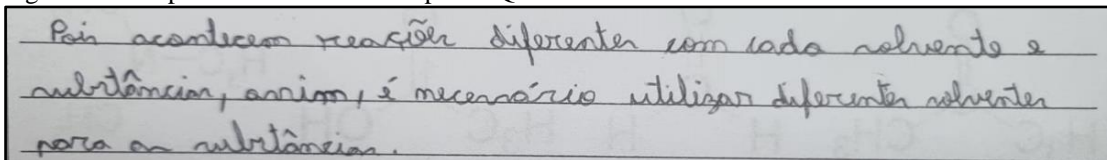 Pois acontecem reações diferentes com cada solvente e
substâncias, assim, é necessário utilizar diferentes solventes
para as substâncias.